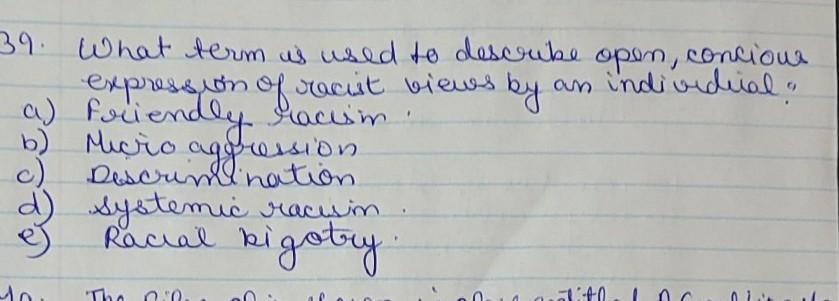 39. What term is used to describe open, concious
expression of racist views by an individual?
a) Friendly racism.
b) Micro aggression
c) Discrimination
d) Systemic racism.
e) Racial bigotry.
The